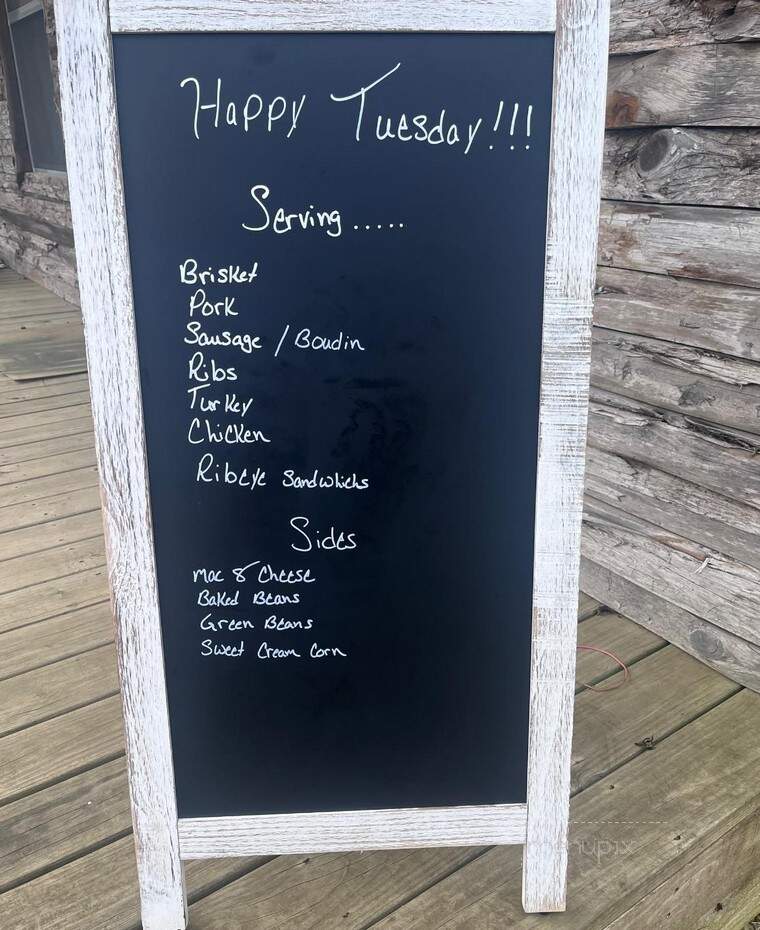 Happy Tuesday!!!
Serving.....
Brisket
Pork
Sausage / Boudin
Ribs
Turkey
Chicken
Ribeye Sandwhichs
Sides
Mac & Cheese
Baked Beans
Green Beans
Sweet Cream Corn